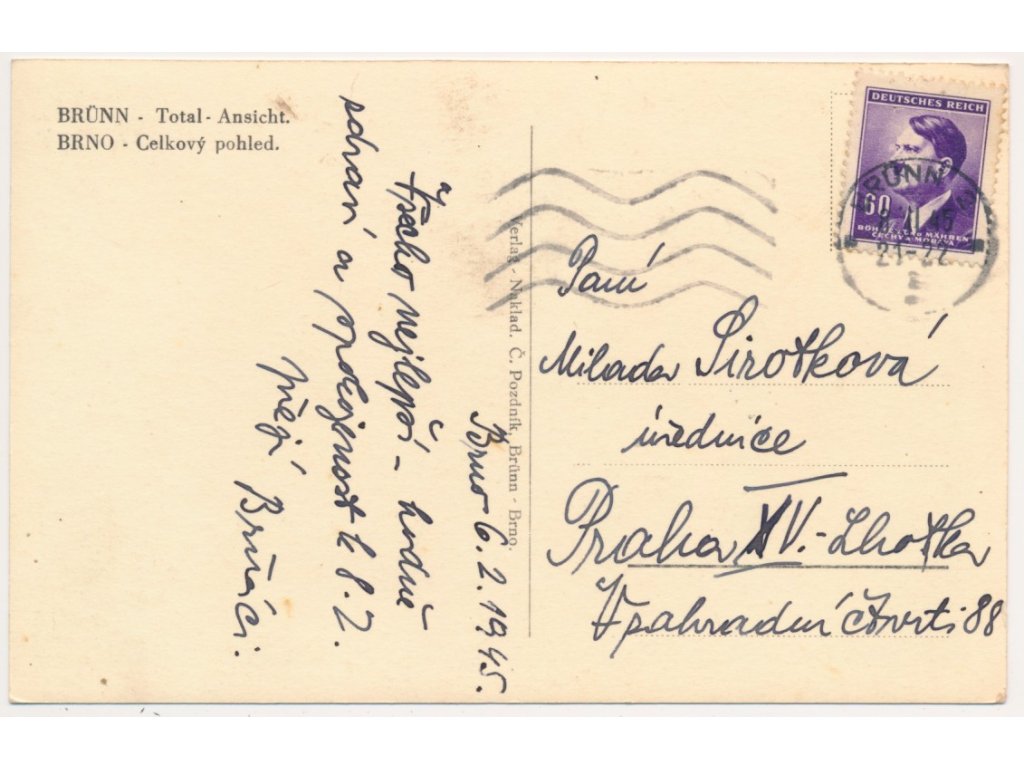 BRÜNN - Total - Ansicht.
BRNO - Celkový pohled.
Brno 6.2.1945.
Všecko nejlepší - hodně
zdraví a spokojenost k 8.2.
přejí Brňáci.
Verlag - Naklad. Č. Pozdník, Brünn - Brno.
DEUTSCHES REICH
60
BÖHMEN UND MÄHREN
ČECHY A MORAVA
BRÜNN
21-22
Paní
Milada Sirotková
úřednice
Praha XV.-Lhotka
V zahradní čtvrti 88